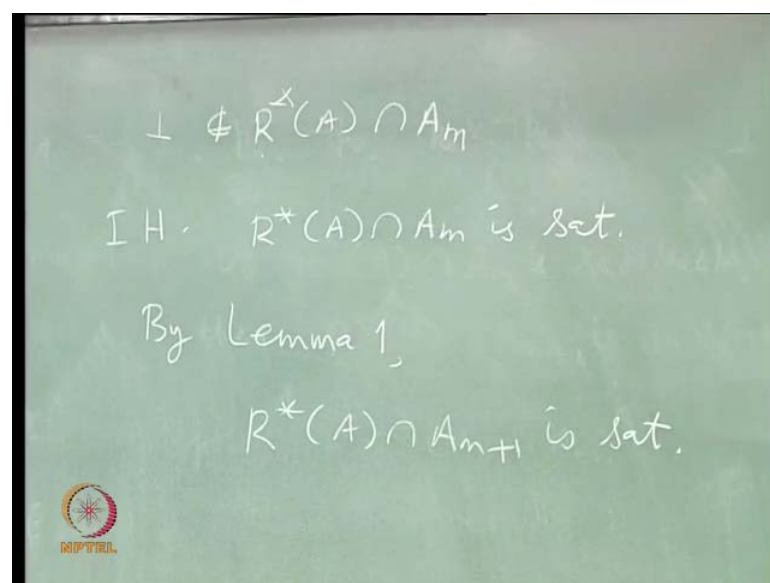 ⊥ ∉ R*(A) ∩ Am
IH. R*(A) ∩ Am is sat.
By Lemma 1,
R*(A) ∩ Am+1 is sat.
NPTEL